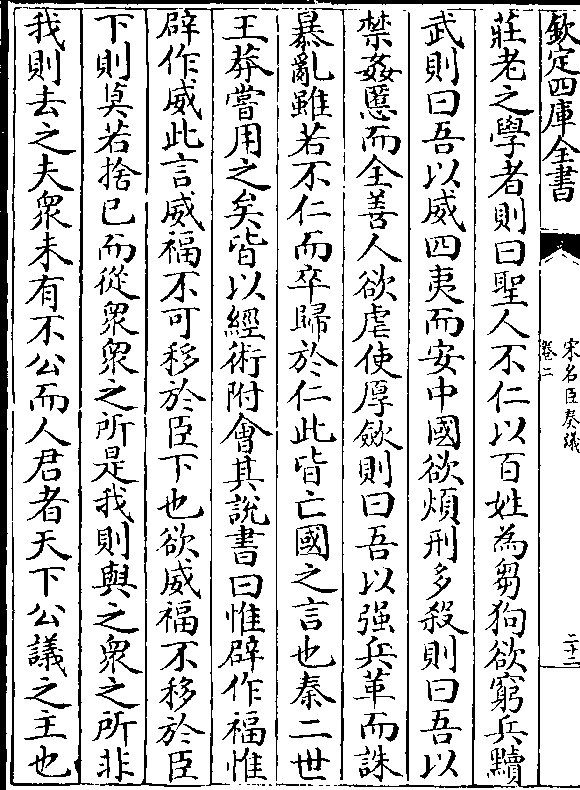 欽定四庫全書
宋名臣奏議
卷二
二十二
莊老之學者則曰聖人不仁以百姓為芻狗欲窮兵黷
武則曰吾以威四夷而安中國欲煩刑多殺則曰吾以
禁姦慝而全善人欲虐使厚斂則曰吾以强兵革而誅
暴亂雖若不仁而卒歸於仁此皆亡國之言也秦二世
王莽嘗用之矣皆以經術附會其說書曰惟辟作福惟
辟作威此言威福不可移於臣下也欲威福不移於臣
下則莫若捨已而從衆衆之所是我則與之衆之所非
我則去之夫衆未有不公而人君者天下公議之主也